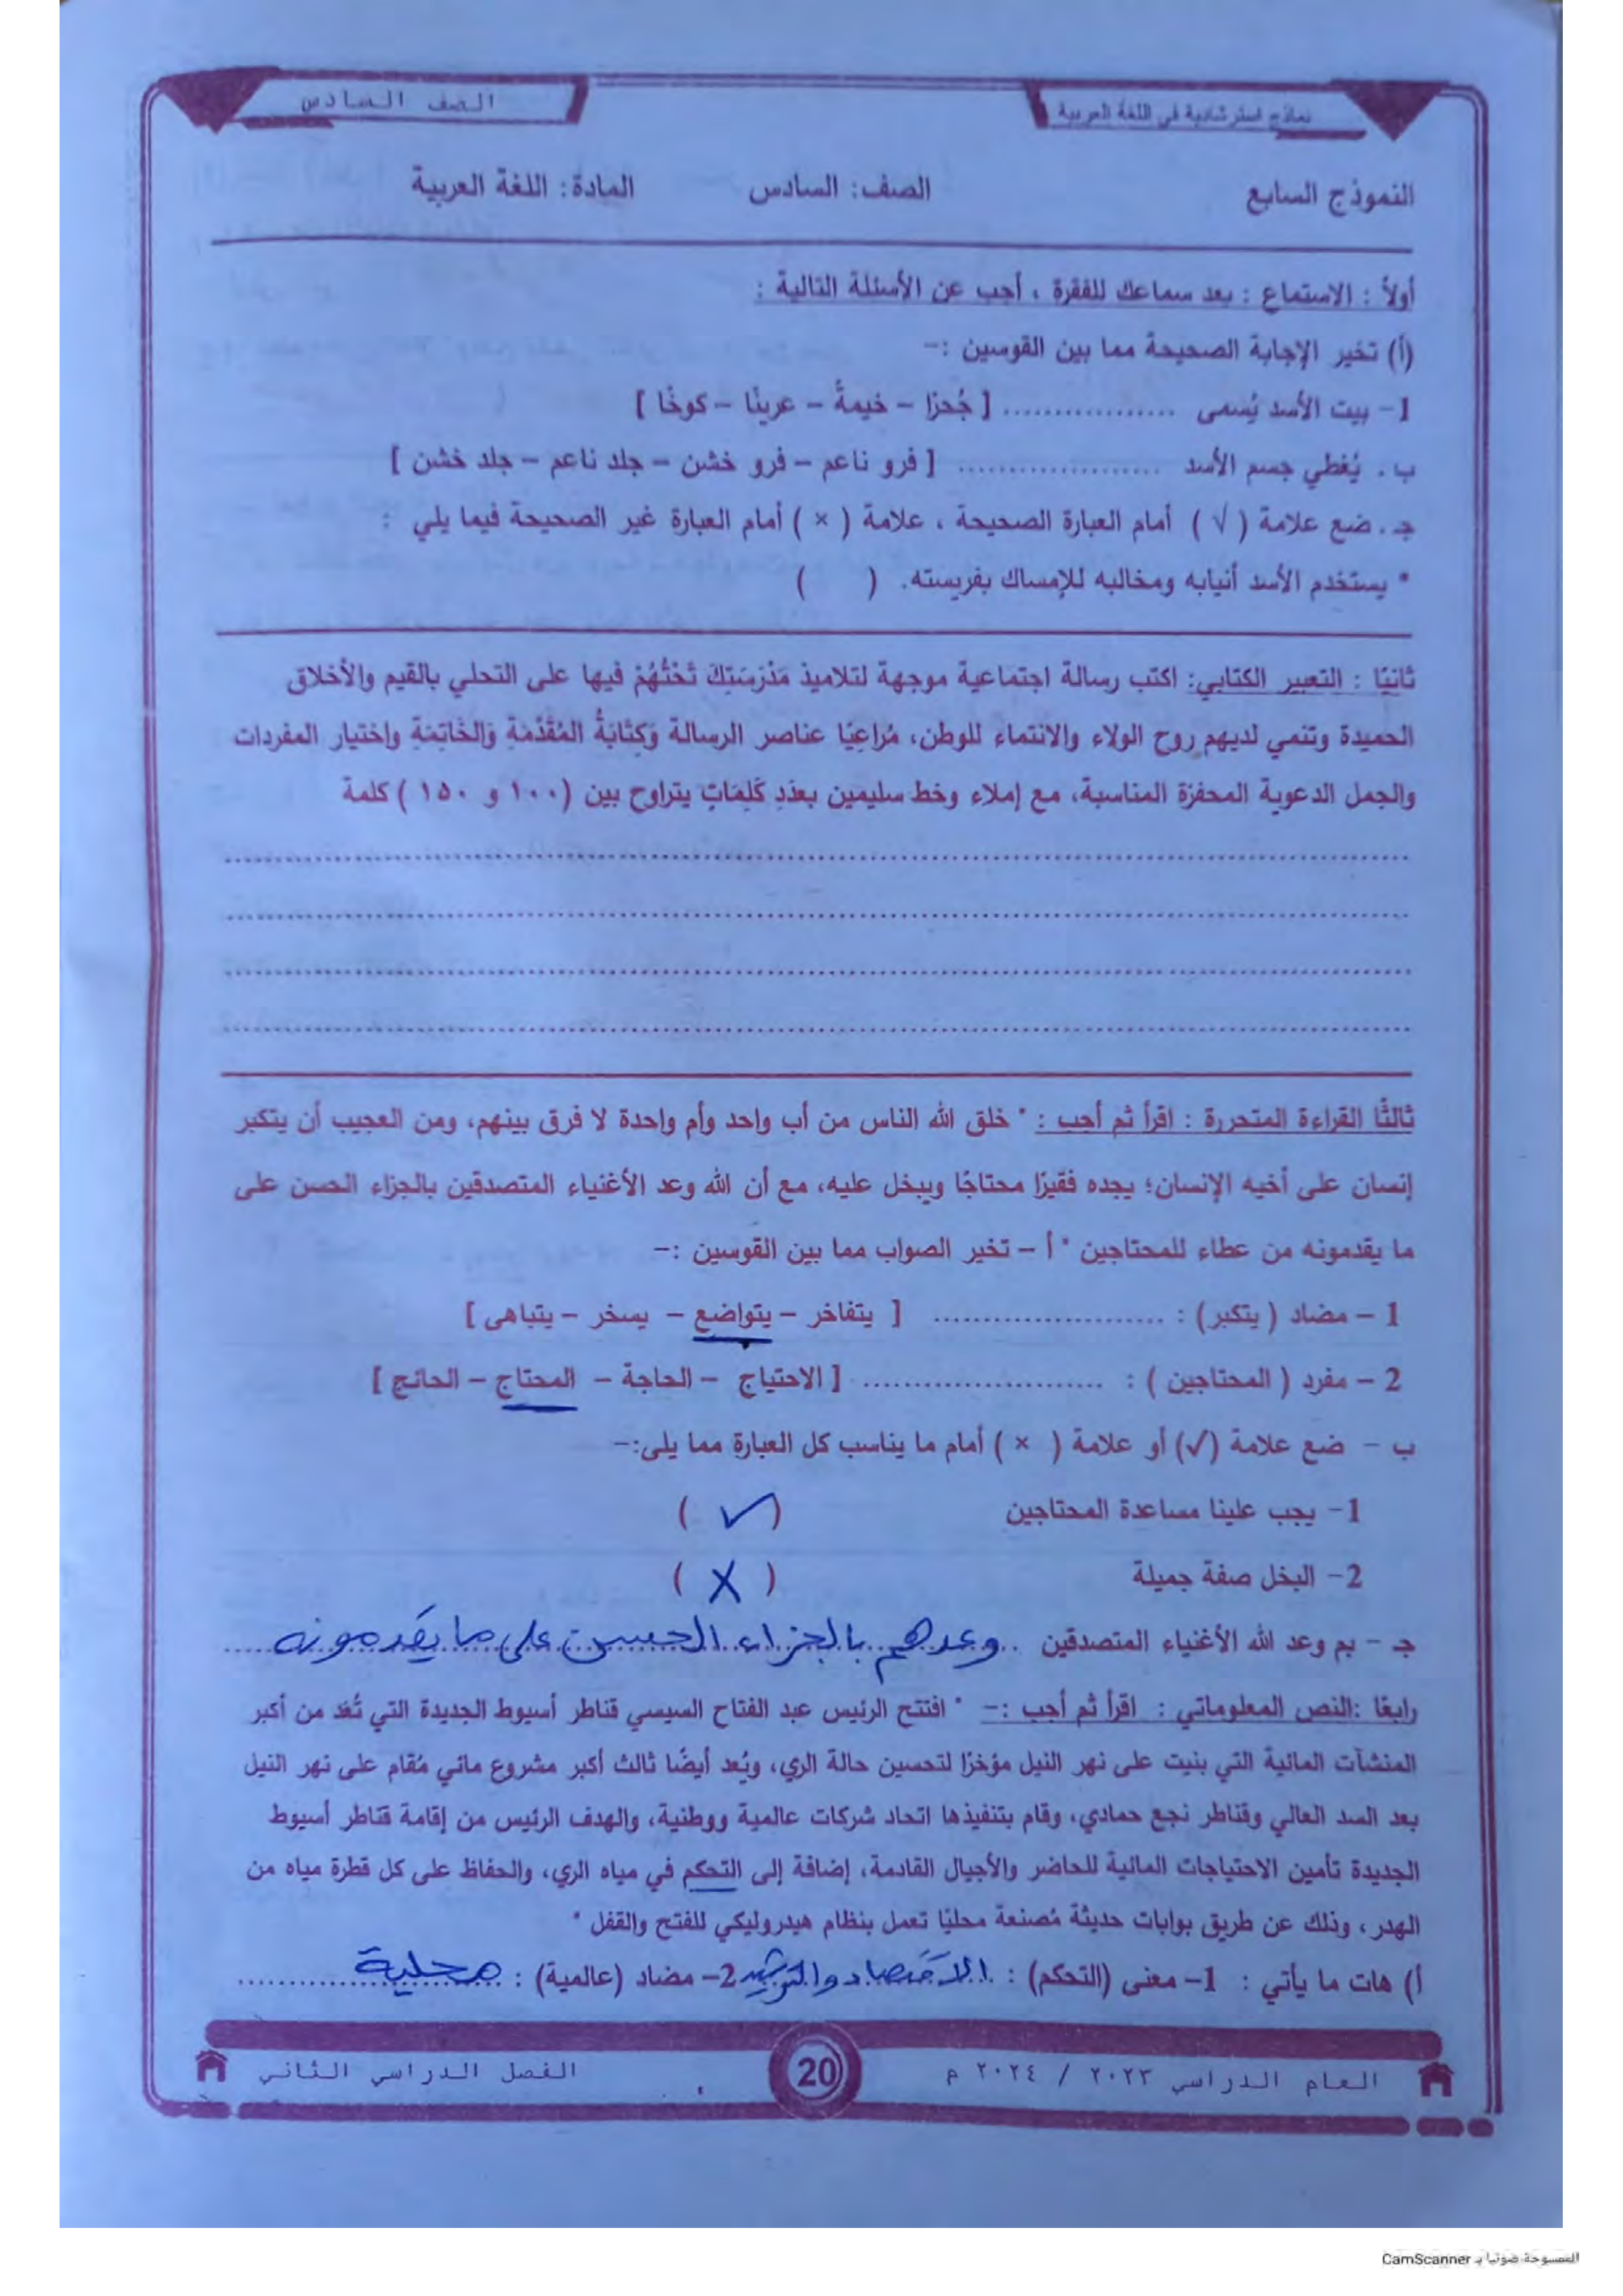 نماذج استرشادية في اللغة العربية
الصف السادس
النموذج السابع الصف: السادس المادة: اللغة العربية
أولاً : الاستماع : بعد سماعك للفقرة ، أجب عن الأسئلة التالية :
(أ) تخير الإجابة الصحيحة مما بين القوسين :-
1- بيت الأسد يُسمى .................. [ جُحرًا - خيمةً - عرينًا - كوخًا ]
ب. يُغطي جسم الأسد ..................... [ فرو ناعم - فرو خشن - جلد ناعم - جلد خشن ]
جـ. ضع علامة ( √ ) أمام العبارة الصحيحة ، علامة ( × ) أمام العبارة غير الصحيحة فيما يلي :
* يستخدم الأسد أنيابه ومخالبه للإمساك بفريسته. ( )
ثانيًا : التعبير الكتابي: اكتب رسالة اجتماعية موجهة لتلاميذ مَدْرَسَتِكَ تَحُثُّهُمْ فيها على التحلي بالقيم والأخلاق
الحميدة وتنمي لديهم روح الولاء والانتماء للوطن، مُراعِيًا عناصر الرسالة وَكِتَابَةُ المُقَدِّمَةِ وَالخَاتِمَةِ واختيار المفردات
والجمل الدعوية المحفزة المناسبة، مع إملاء وخط سليمين بعدَدِ كَلِمَاتٍ يتراوح بين (١٠٠ و ١٥٠ ) كلمة
ثالثًا القراءة المتحررة : اقرأ ثم أجب : " خلق الله الناس من أب واحد وأم واحدة لا فرق بينهم، ومن العجيب أن يتكبر
إنسان على أخيه الإنسان؛ يجده فقيرًا محتاجًا ويبخل عليه، مع أن الله وعد الأغنياء المتصدقين بالجزاء الحسن على
ما يقدمونه من عطاء للمحتاجين " أ - تخير الصواب مما بين القوسين :-
1 - مضاد ( يتكبر) : ........................ [ يتفاخر - يتواضع - يسخر - يتباهى ]
2 - مفرد ( المحتاجين ) : ......................... [ الاحتياج - الحاجة - المحتاج - الحائج ]
ب - ضع علامة (✓) أو علامة ( × ) أمام ما يناسب كل العبارة مما يلى:-
1- يجب علينا مساعدة المحتاجين ( ✓ )
2- البخل صفة جميلة ( X )
جـ - بم وعد الله الأغنياء المتصدقين وعدهم بالجزاء الحسن على ما يقدمونه
رابعًا :النص المعلوماتي : اقرأ ثم أجب :- " افتتح الرئيس عبد الفتاح السيسي قناطر أسيوط الجديدة التي تُعَد من أكبر
المنشآت المائية التي بنيت على نهر النيل مؤخرًا لتحسين حالة الري، ويُعد أيضًا ثالث أكبر مشروع مائي مُقام على نهر النيل
بعد السد العالي وقناطر نجع حمادي، وقام بتنفيذها اتحاد شركات عالمية ووطنية، والهدف الرئيس من إقامة قناطر أسيوط
الجديدة تأمين الاحتياجات المائية للحاضر والأجيال القادمة، إضافة إلى التحكم في مياه الري، والحفاظ على كل قطرة مياه من
الهدر ، وذلك عن طريق بوابات حديثة مُصنعة محليًا تعمل بنظام هيدروليكي للفتح والقفل "
أ) هات ما يأتي : 1- معنى (التحكم) : الاقتصاد والترشيد 2- مضاد (عالمية) : محلية
العام الدراسي ٢٠٢٣ / ٢٠٢٤ م 20 الفصل الدراسي الثاني
الممسوحة ضوئيا بـ CamScanner